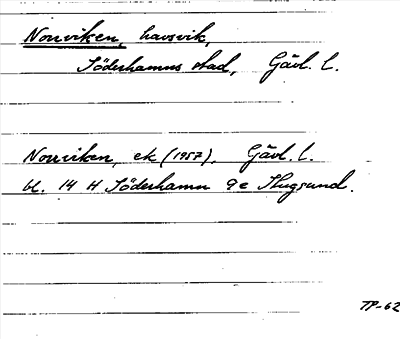 Norrviken, havsvik,
Söderhamns stad, Gävl. l.
Norrviken, ek (1957), Gävl. l.
bl. 14 H Söderhamn 9e Stugsund.
TP-62